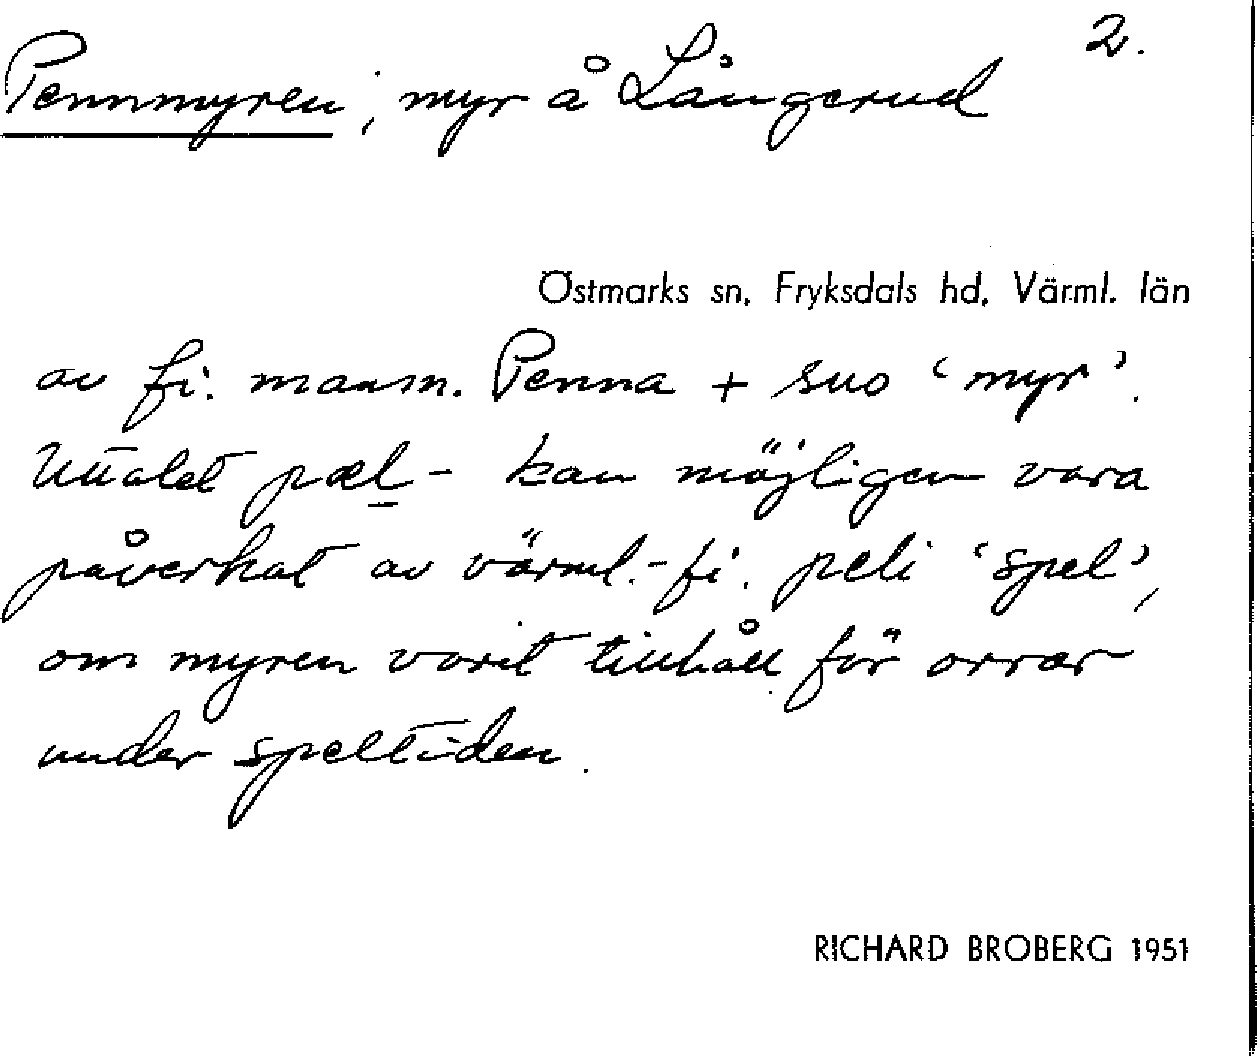 2.
Pennmyren, myr å Långerud
Östmarks sn, Fryksdals hd, Värml. län
av fi. mansn. Penna + suo ‘myr’.
Uttalet pæl- kan möjligen vara
påverkat av värml.-fi. peli ‘spel’,
om myren varit tillhåll för orrar
under speltiden.
RICHARD BROBERG 1951